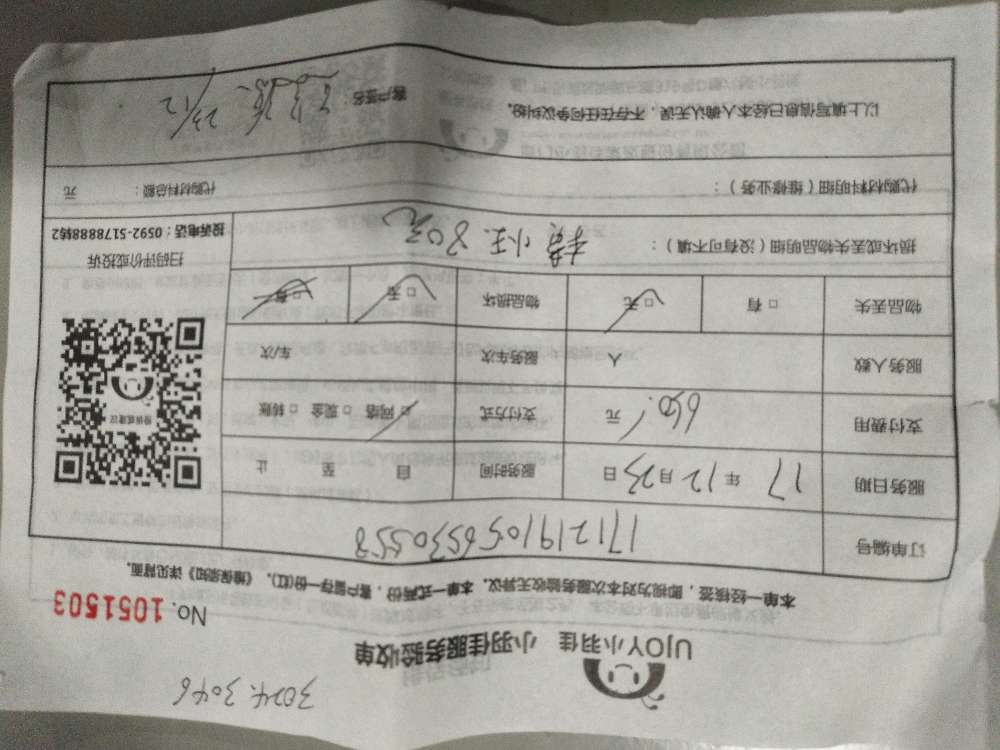 3024.3046
UJOY小羽佳 小羽佳服务验收单
No. 1051503
本单一经核签,即视为对本次服务验收无异议。本单一式两份,客户留存一份(红)。《维保须知》详见背面。
订单编号 17121910565330558
服务日期 17 年 12 月 23 日 服务时间 自 至 止
支付费用 650. 元 支付方式 ☑ 网络 □ 现金 □ 转账
服务人数 人 服务车次 车/次
物品丢失 □ 有 ☑ 无 物品损坏 ☑ 否 □ 有
投诉或建议
扫码评价或投诉
投诉电话:0592-5178888转2
损坏或丢失物品明细(没有可不填): 小王. 80元
代购材料明细(维修业务): 代购材料总额: 元
以上填写信息已经本人确认无误,不存在任何争议纠纷。 客户签名: 23/12